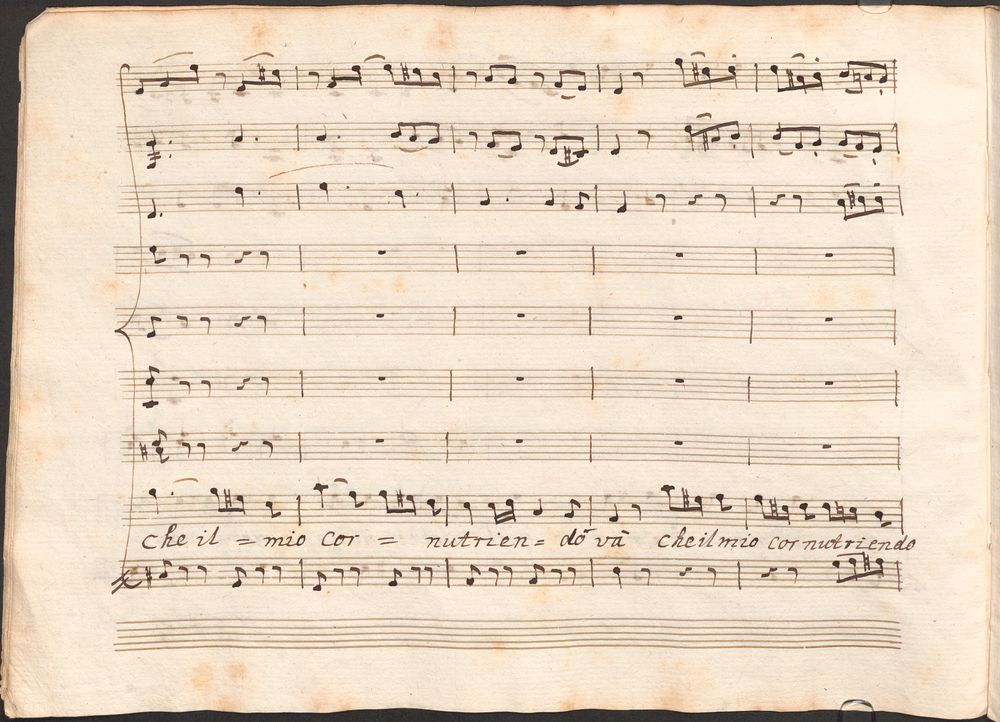 che il = mio cor = nutrien = do và che il mio cor nutriendo